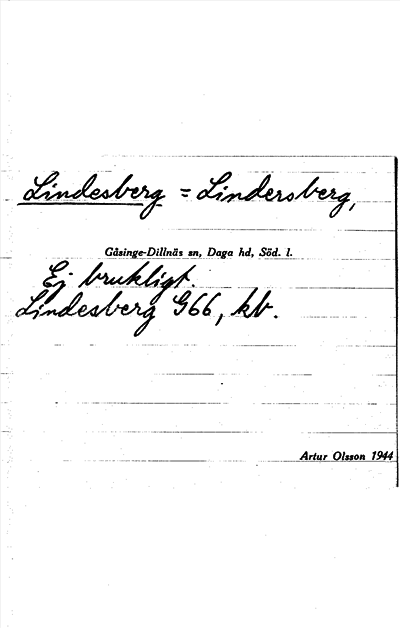 Lindesberg = Lindersberg,
Gåsinge-Dillnäs sn, Daga hd, Söd. l.
Ej brukligt.
Lindesberg G66, kb.
Artur Olsson 1944